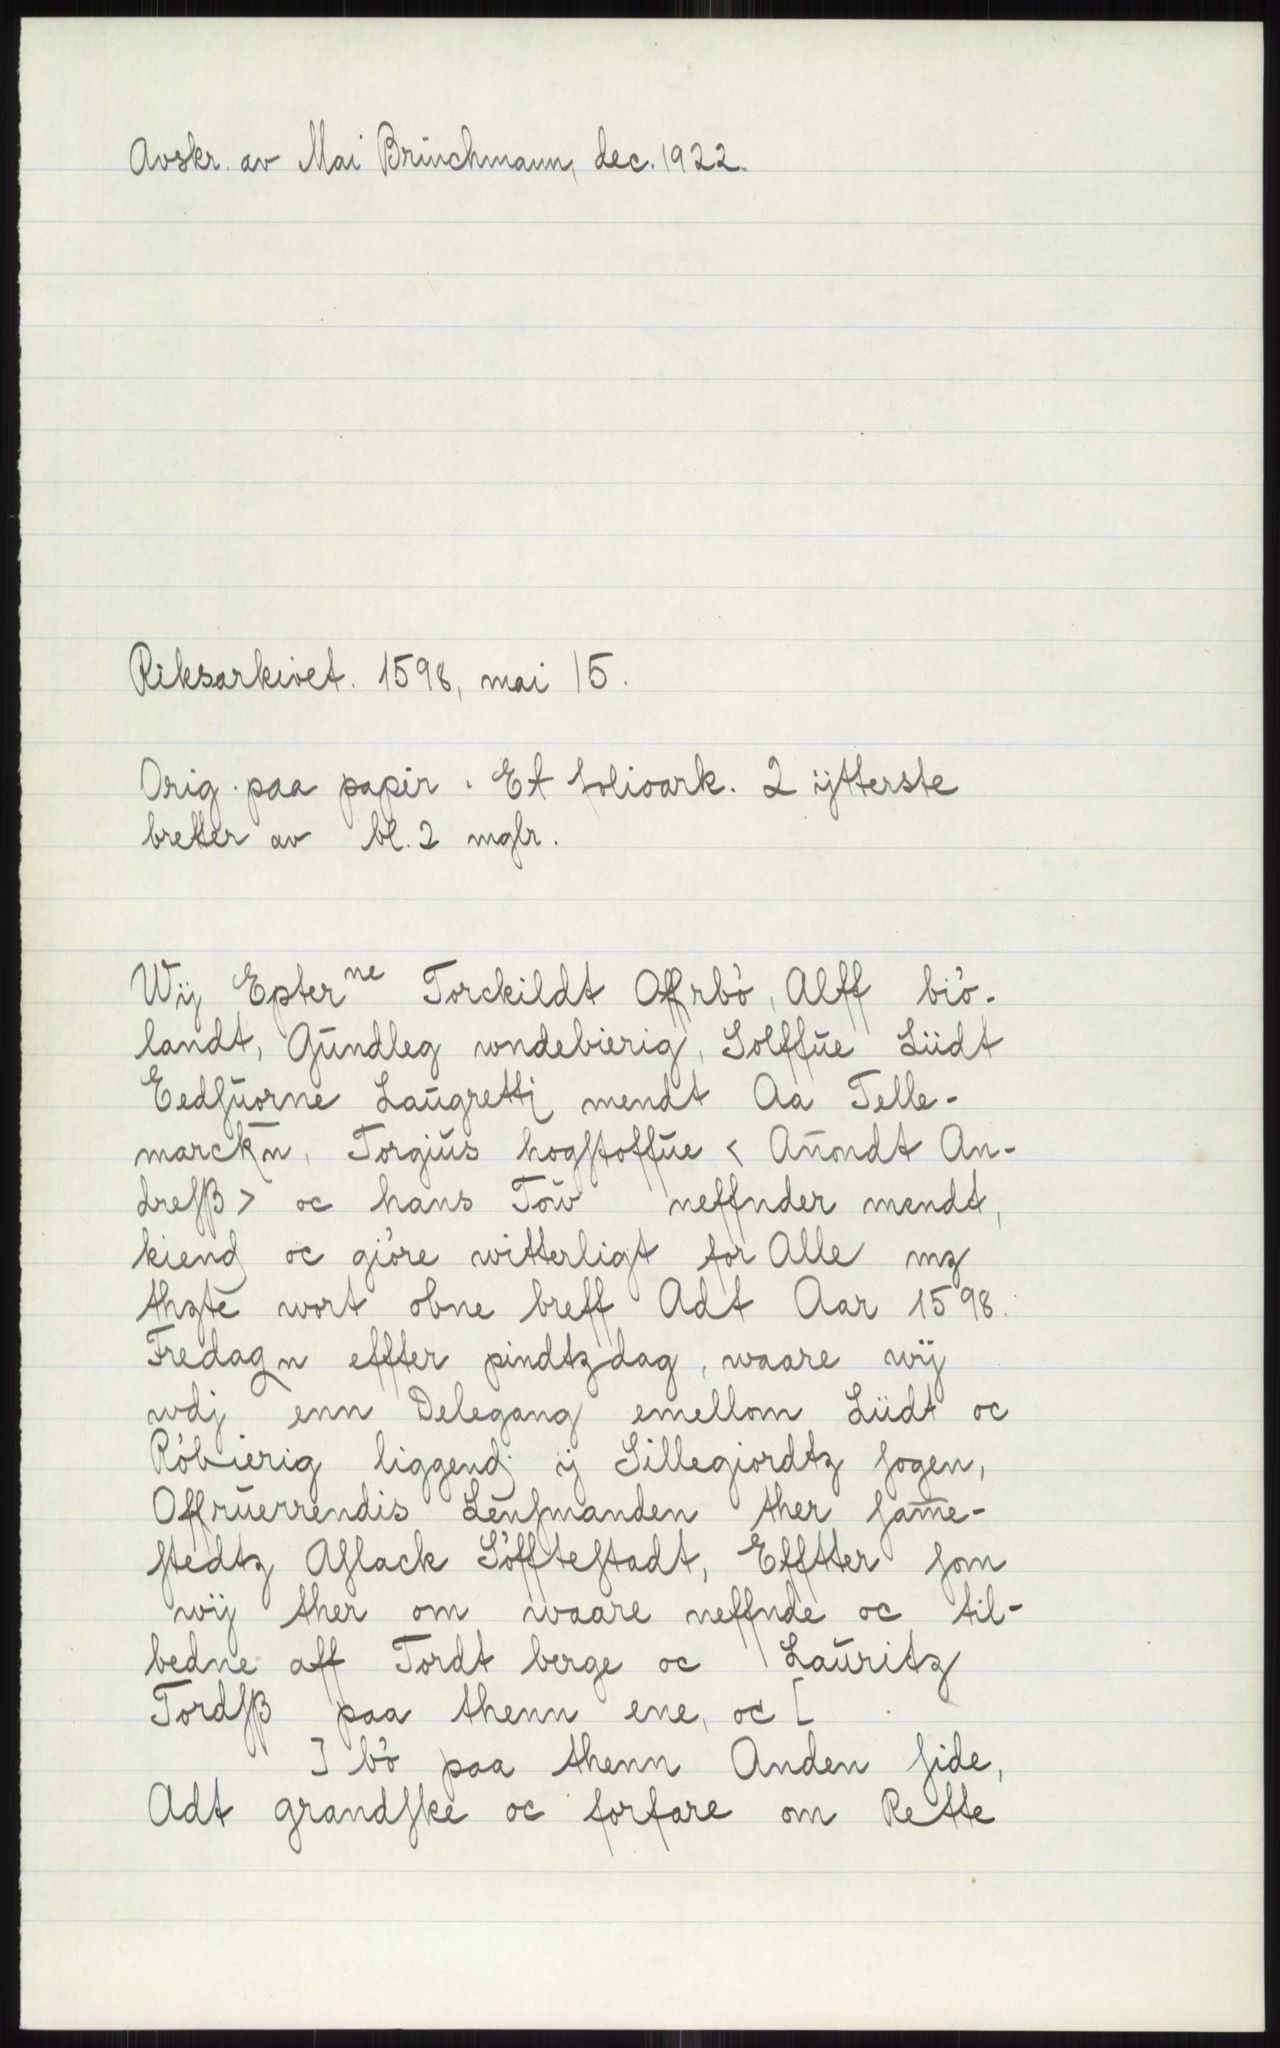 Avskr. av Mai Brinchmann, dec. 1922.
Riksarkivet. 1598, mai 15.
Orig. paa papir. Et folioark. 2 ytterste
bretter av bl. 2 mglr.
Wij Epter ne Torckildt Offrbö, Alff biö-
landt, Gundleg wndebierig, Solffue Liidt
Eedsuorne Laugrettj mendt Aa Telle-
marckn̄, Torgius hogstoffue < Anondt An-
dresß > oc hans Tow neffnder mendt,
kiendj oc giöre witterligt for Alle mz
thztē wort obne breff Adt Aar 1598.
Fredagn effter pindtzdag, waare wij
wdj enn Delegang emellom Liidt oc
Röbierig liggendj ij Sillegiordtz sogen,
Offruerrendis Lensmanden ther sam̄e-
stedtz Aslack Söfftestadt, Efftter som
wij ther om waare neffnde oc til-
bedne aff Tordt berge oc Lauritz
Tordsß paa thenn ene, oc [
] bö paa thenn Anden side,
Adt grandske oc forfare om Rette